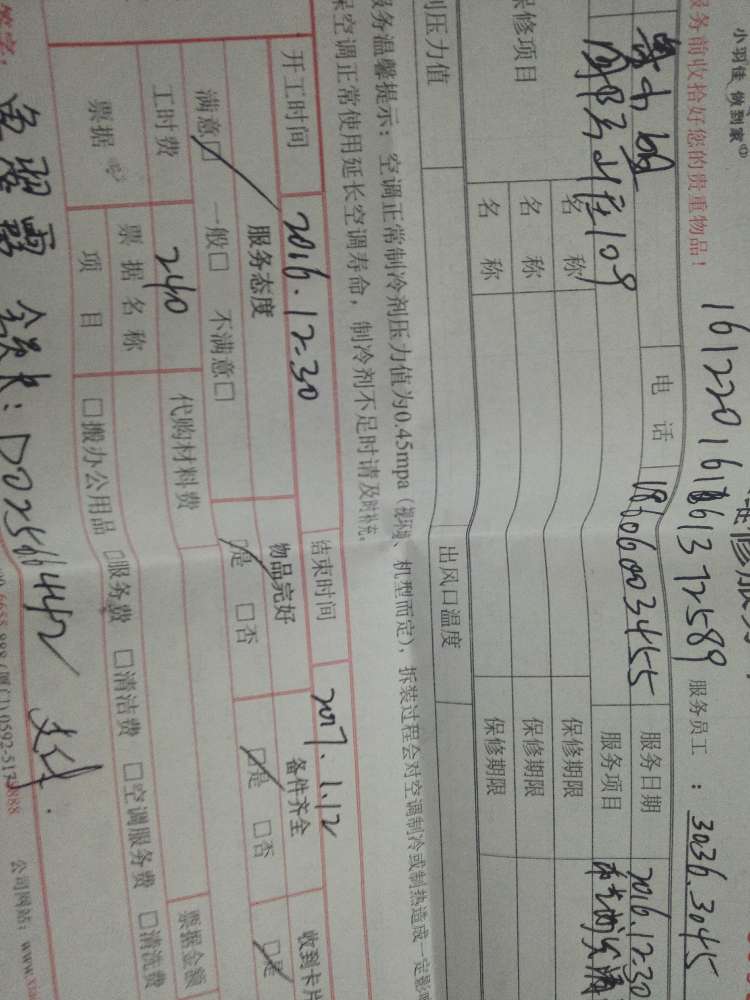 小羽佳 做到家
服务前收拾好您的贵重物品！
16122016186137 2589 服务员工：3036.3045
电话 18606003455 服务日期 2016.12.30
109 服务项目
保修项目 名称 保修期限
名称 保修期限
名称 保修期限
制压力值 出风口温度
服务温馨提示：空调正常制冷剂压力值为0.45mpa（视环境、机型而定），拆装过程会对空调制冷或制热造成一定影响
保空调正常使用延长空调寿命，制冷剂不足时请及时补充。
开工时间 2016.12.30 结束时间 2017.1.12
服务态度 物品完好 备件齐全 收到卡片
满意□ 一般□ 不满意□ □是 □否 □是 □否 □是
工时费 240 代购材料费
票据 票据名称 票据金额
项目 □搬办公用品 □服务费 □清洁费 □空调服务费 □清洗费
签字： D02566442
0592-5173988 公司网站：www.xia